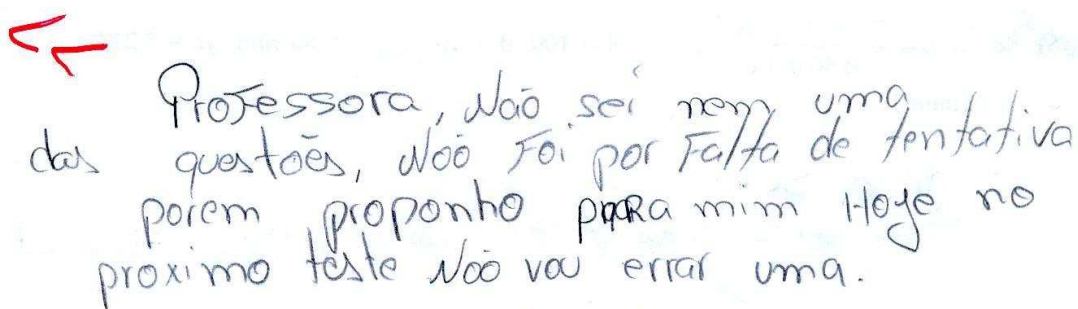 Professora, Não sei nem uma
das questões, Não Foi por Falta de tentativa
porem proponho para mim Hoje no
proximo teste Não vou errar uma.